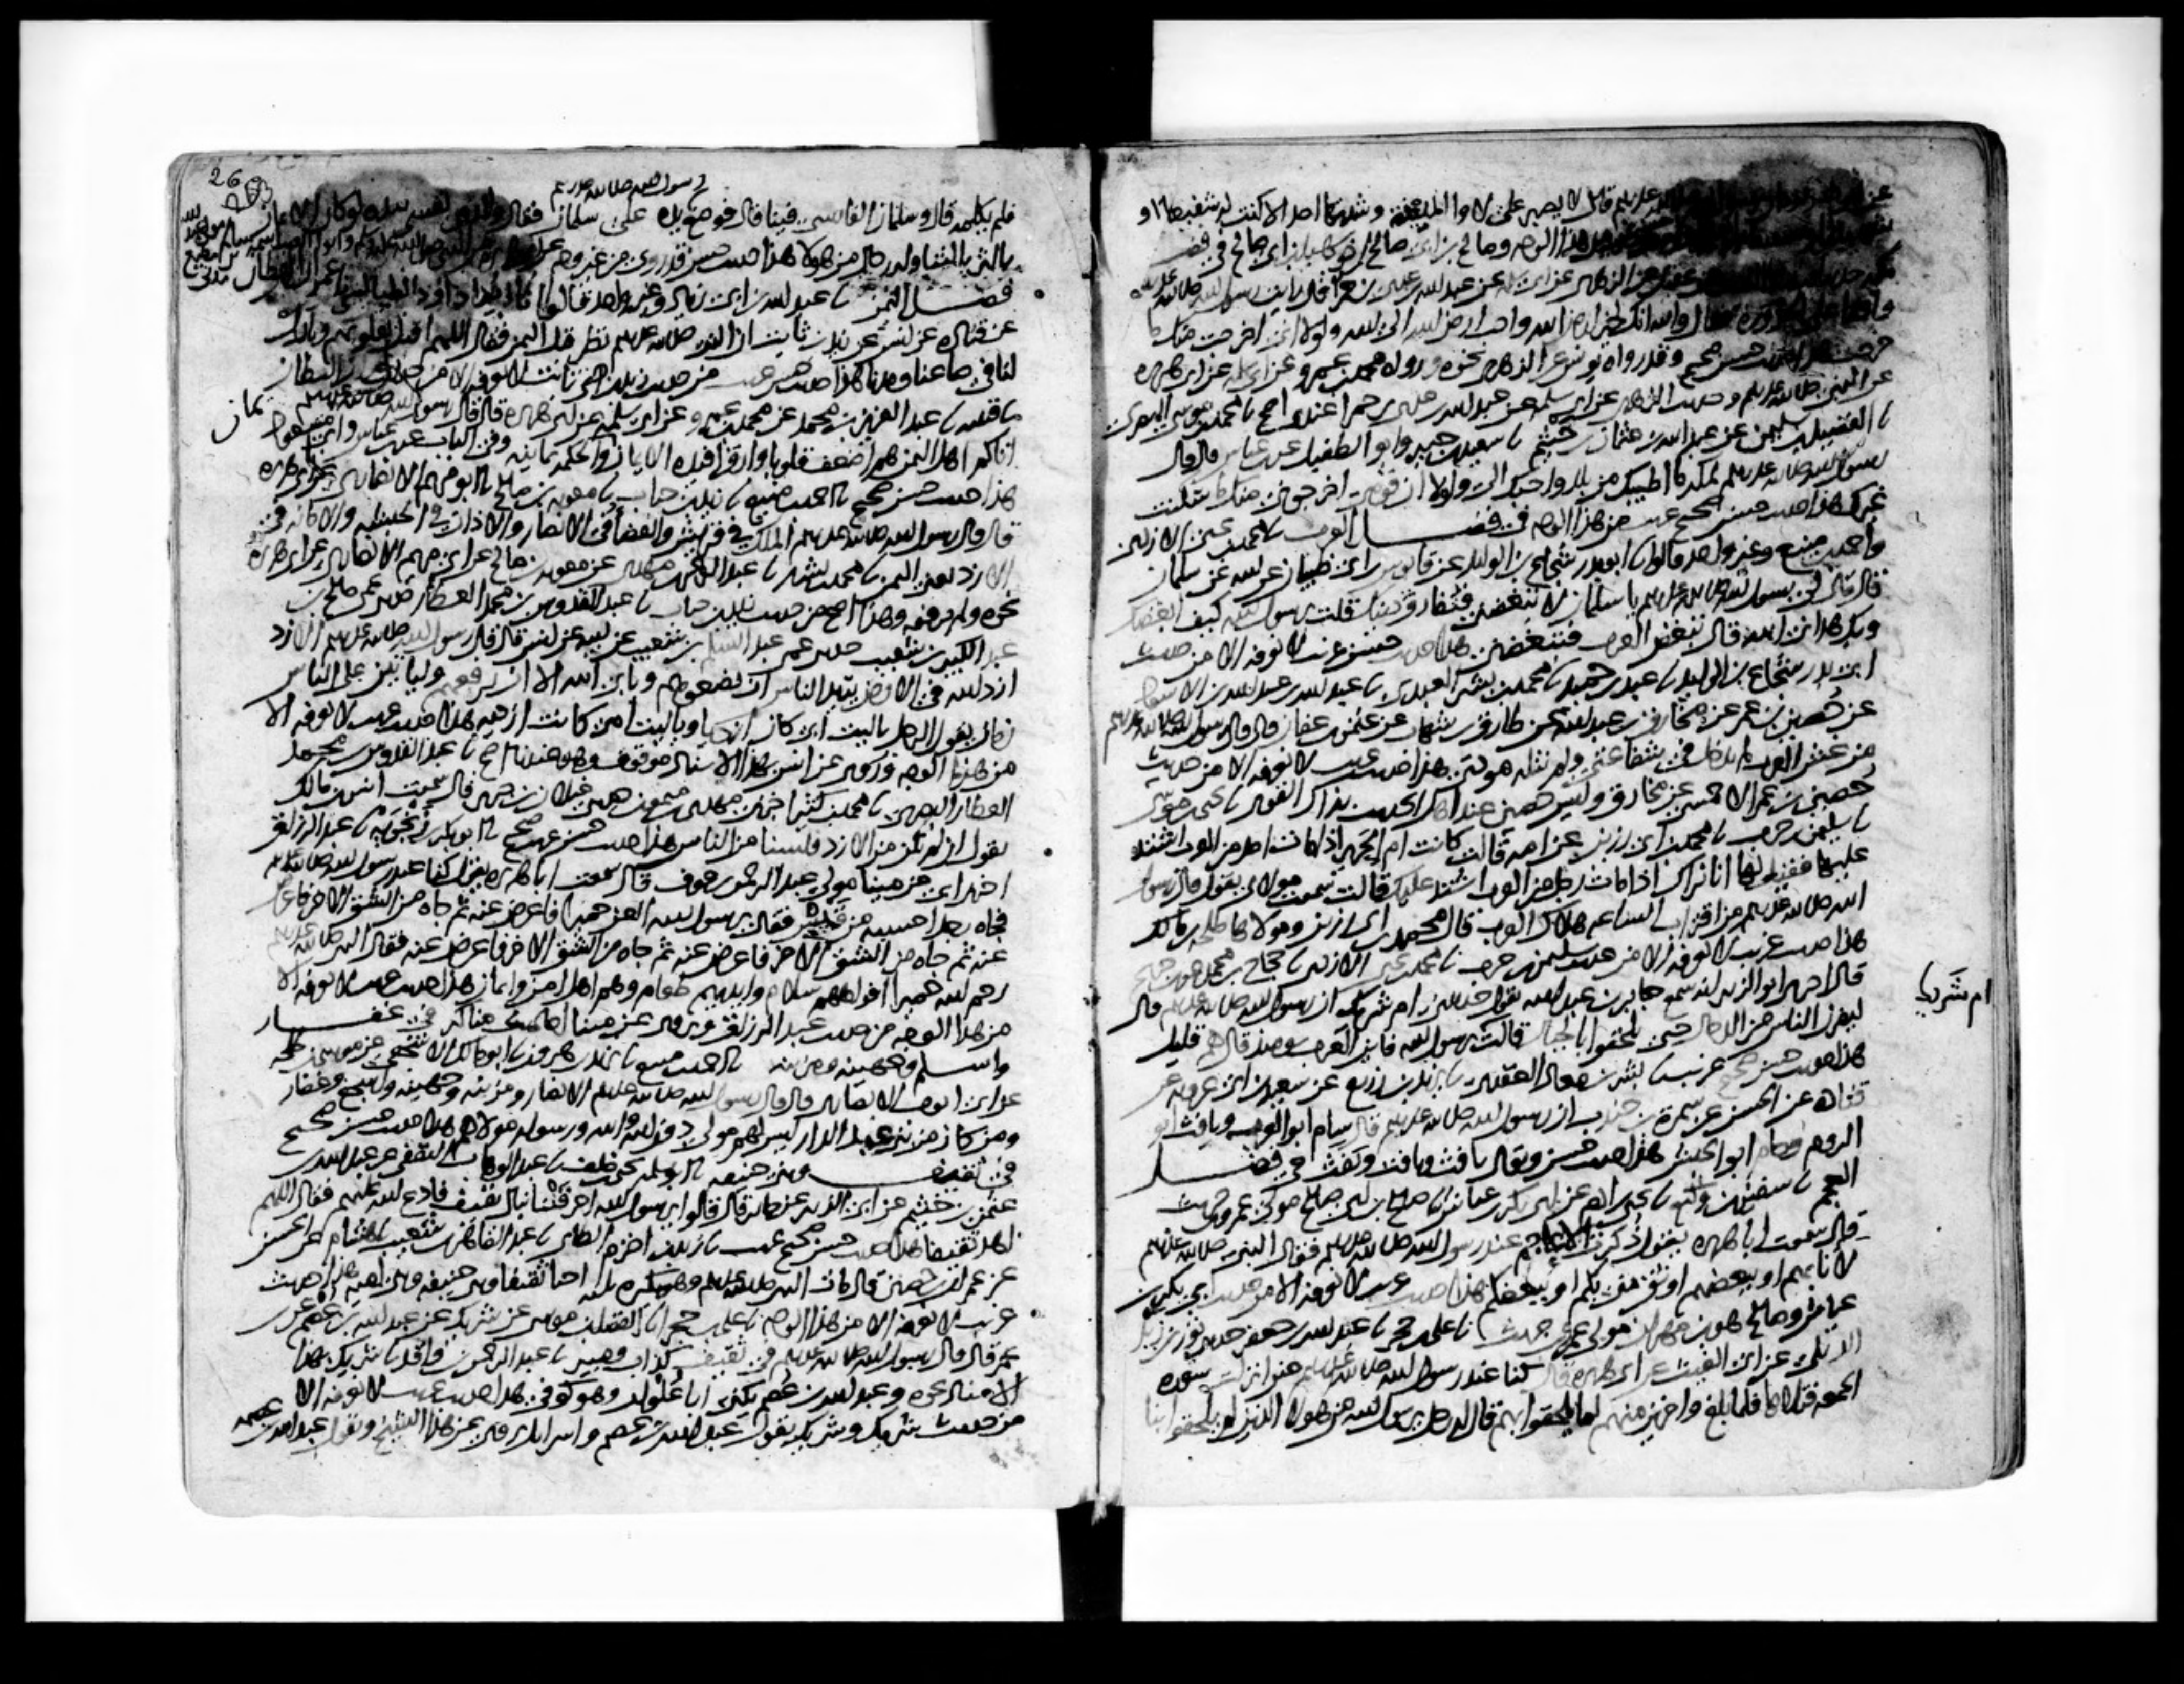 قال لا يصبر على لاوا المدينة وشدتها احد الا كنت له شفيعا او
هذا الوجه وصالح بن ابي صالح اخو سهيل بن ابي صالح في فضل
عن الزهري عن ابي سلمة عن عبد الله بن عدي بن حمرا قال رايت رسول الله صلى الله عليه
فقال والله انك لخير ارض الله واحب ارض الله الى الله ولولا اني اخرجت منك ما
خرجت هذا حديث حسن صحيح وقد رواه يونس عن الزهري نحوه ورواه محمد بن عمرو عن ابي سلمة عن ابي هريرة
عن النبي صلى الله عليه وسلم وحديث الزهري عن ابي سلمة عن عبد الله بن عدي بن حمرا عندي اصح نا محمد بن موسى البصري
نا الفضيل بن سليمن عن عبد الله بن عثمان بن خثيم نا سعيد بن جبير وابو الطفيل عن ابن عباس قال قال
رسول الله صلى الله عليه وسلم لمكة ما اطيبك من بلد واحبك الي ولولا ان قومي اخرجوني منك ما سكنت
غيرك هذا حديث حسن صحيح غريب من هذا الوجه في فضل العرب نا محمد بن يحيى الازدي
واحمد بن منيع وغير واحد قالوا نا ابو بدر شجاع بن الوليد عن قابوس بن ابي ظبيان عن ابيه عن سلمان
قال قال لي رسول الله صلى الله عليه وسلم يا سلمان لا تبغضني فتفارق دينك قلت يا رسول الله كيف ابغضك
وبك هداني الله قال تبغض العرب فتبغضني هذا حديث حسن غريب لا نعرفه الا من حديث
ابي بدر شجاع بن الوليد نا عبد بن حميد نا محمد بن بشر العبدي نا عبد الله بن عبد الله بن الاسود
عن حصين بن عمر عن مخارق بن عبد الله عن طارق بن شهاب عن عثمن بن عفان قال قال رسول الله صلى الله عليه وسلم
من غش العرب لم يدخل في شفاعتي ولم تنله مودتي هذا حديث غريب لا نعرفه الا من حديث
حصين بن عمر الاحمسي عن مخارق وليس حصين عند اهل الحديث بذاك القوي نا يحيى بن موسى
نا سليمن بن حرب نا محمد بن ابي رزين عن امه قالت كانت ام الحرير اذا مات احد من العرب اشتد
عليها فقيل لها انا نراك اذا مات رجل من العرب اشتد عليك قالت سمعت مولاي يقول قال رسول
الله صلى الله عليه وسلم من اقتراب الساعه هلاك العرب قال محمد بن ابي رزين ومولاها طلحة بن مالك
هذا حديث غريب لا نعرفه الا من حديث سليمن بن حرب نا محمد بن يحيى الازدي نا حجاج بن محمد عن ابن جريج
قال اخبرني ابو الزبير انه سمع جابر بن عبد الله يقول حدثتني ام شريك ان رسول الله صلى الله عليه وسلم قال
ليفرن الناس من الدجال حتى يلحقوا بالجبال قالت يا رسول الله فاين العرب يومئذ قال هم قليل
هذا حديث حسن صحيح غريب نا بشر بن معاذ العقدي نا يزيد بن زريع عن سعيد بن ابي عروبة عن
قتادة عن الحسن عن سمرة بن جندب ان رسول الله صلى الله عليه وسلم قال سام ابو العرب ويافث ابو
الروم وحام ابو الحبش هذا حديث حسن ويقال يافث ويافت ويفث في فضل
العجم نا سفين بن وكيع نا يحيى بن ادم عن ابي بكر بن عياش نا صالح بن ابي صالح مولى عمرو بن حريث
قال سمعت ابا هريرة يقول ذكرت الاعاجم عند رسول الله صلى الله عليه وسلم فقال النبي صلى الله عليه وسلم
لانا بهم او ببعضهم اوثق مني بكم او ببعضكم هذا حديث غريب لا نعرفه الا من حديث ابي بكر بن
عياش وصالح هو بن مهران مولى عمرو بن حريث نا علي بن حجر نا عبد الله بن جعفر حدثني ثور بن زيد
الديلي عن ابي الغيث عن ابي هريرة قال كنا عند رسول الله صلى الله عليه وسلم حين انزلت سورة
الجمعة فتلاها فلما بلغ واخرين منهم لما يلحقوا بهم قال له رجل يا رسول الله من هولا الذين لم يلحقوا بنا
ام شريك
26
رسول الله صلى الله عليه وسلم
فلم يكلمه قال وسلمان الفارسي فينا قال فوضع يده على سلمان فقال والذي نفسي بيده لو كان الايمان
بالثريا لتناوله رجال من هولا هذا حديث حسن قد روي من غير وجه
فضل اليمن نا عبد الله بن ابي زياد وغير واحد قالوا نا ابو داود الطيالسي نا عمران القطان
عن قتادة عن انس عن زيد بن ثابت ان النبي صلى الله عليه وسلم نظر قبل اليمن فقال اللهم اقبل بقلوبهم وبارك
لنا في صاعنا ومدنا هذا حديث حسن غريب من حديث زيد بن ثابت لا نعرفه الا من حديث عمران القطان
نا قتيبه نا عبد العزيز بن محمد عن محمد بن عمرو عن ابي سلمة عن ابي هريرة قال قال رسول الله صلى الله عليه وسلم
اتاكم اهل اليمن هم اضعف قلوبا وارق افئدة الايمان يمان والحكمه يمانيه وفي الباب عن ابن عباس وابن مسعود
هذا حديث حسن صحيح نا احمد بن منيع نا زيد بن حباب نا معوية بن صالح نا ابو مريم الانصاري عن ابي هريرة
قال قال رسول الله صلى الله عليه وسلم الملك في قريش والقضاء في الانصار والاذان في الحبشه والامانة في
الازد يعني اليمن نا محمد بن بشار نا عبد الرحمن بن مهدي عن معوية بن صالح عن ابي مريم الانصاري عن ابي هريرة
نحوه ولم يرفعه وهذا اصح من حديث زيد بن حباب نا عبد القدوس بن محمد العطار حدثني عمي صالح بن
عبد الكبير بن شعيب حدثني عمي عبد السلام بن شعيب عن ابيه عن انس قال قال رسول الله صلى الله عليه وسلم الازد
ازد الله في الارض يريد الناس ان يضعوهم ويابى الله الا ان يرفعهم ولياتين على الناس
زمان يقول الرجل يا ليت ابي كان ازديا ويا ليت امي كانت ازديه هذا حديث غريب لا نعرفه الا
من هذا الوجه وروي عن انس بهذا الاسناد موقوف وهو عندنا اصح نا عبد القدوس بن محمد
العطار البصري نا محمد بن كثير اخبرني مهدي بن ميمون حدثني غيلان بن جرير قال سمعت انس بن مالك
يقول ان لم نكن من الازد فلسنا من الناس هذا حديث حسن غريب صحيح نا ابو بكر بن زنجويه نا عبد الرزاق
اخبرني ابي عن مينا مولى عبد الرحمن بن عوف قال سمعت ابا هريرة يقول كنا عند رسول الله صلى الله عليه وسلم
فجاه رجل احسبه من قيس فقال يا رسول الله العن حميرا فاعرض عنه ثم جاه من الشق الاخر فاعرض
عنه ثم جاه من الشق الاخر فاعرض عنه ثم جاه من الشق الاخر فاعرض عنه فقال النبي صلى الله عليه وسلم
رحم الله حميرا افواههم سلام وايديهم طعام وهم اهل امن وايمان هذا حديث غريب لا نعرفه الا
من هذا الوجه من حديث عبد الرزاق ويروى عن مينا احاديث مناكير في غفار
واسلم وجهينه ومزينه نا احمد بن منيع نا يزيد بن هرون نا ابو مالك الاشجعي عن موسى بن طلحه
عن ابي ايوب الانصاري قال قال رسول الله صلى الله عليه وسلم الانصار ومزينه وجهينه واشجع وغفار
ومن كان من بني عبد الدار ليس لهم مولى دون الله والله ورسوله مولاهم هذا حديث حسن صحيح
في ثقيف وبني حنيفه نا ابو سلمه يحيى بن خلف نا عبد الوهاب الثقفي عن عبد الله بن
عثمن بن خثيم عن ابي الزبير عن جابر قال قالوا يا رسول الله احرقتنا نبال ثقيف فادع الله عليهم فقال اللهم
اهد ثقيفا هذا حديث حسن صحيح غريب نا زيد بن اخزم الطائي نا عبد القاهر بن شعيب نا هشام عن الحسن
عن عمران بن حصين قال مات النبي صلى الله عليه وسلم وهو يكره ثلثه احيا ثقيفا وبني حنيفه وبني اميه هذا حديث
غريب لا نعرفه الا من هذا الوجه نا علي بن حجر انا الفضل بن موسى عن شريك عن عبد الله بن عصم عن ابن
عمر قال قال رسول الله صلى الله عليه وسلم في ثقيف كذاب ومبير نا عبد الرحمن بن واقد نا شريك بهذا
الاسناد نحوه وعبد الله بن عصم يكنى ابا علوان وهو كوفي هذا حديث غريب لا نعرفه الا
من حديث شريك وشريك يقول عبد الله بن عصم واسرايل يروي عن هذا الشيخ ويقول عبد الله بن عصمه
يمان